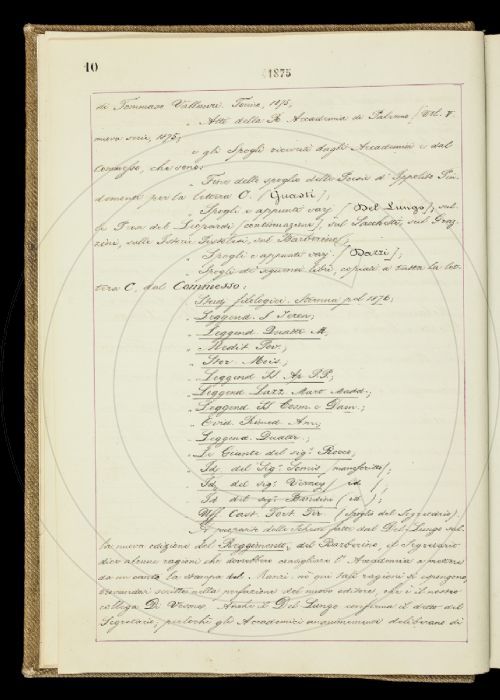 10
1875
di Tommaso Vallauri. Torino, 1875,
" Atti della R. Accademia di Palermo (Vol. V
nuova serie, 1875;
e gli Spogli ricevuti dagli Accademici e dal
Commesso, che sono:
" Fine dello spoglio delle Poesie di Ippolito Pin-
demonte per la lettera C. (Guasti);
" Spogli e appunti varj (Del Lungo), sul-
le Prose del Leopardi (continuazione), sul Sacchetti, sul Graz-
zini, sulle Istorie Pistolesi, sul Barberino;
" Spogli e appunti varj (Dazzi);
" Spogli de' seguenti libri, copiati a tutta la let-
tera C, dal Commesso:
Studj filologici. Strenna pel 1876;
" Leggend. S. Jeron;
" Leggend. Quattr. M.
" Medit. Pov.;
" Stor. Mois.;
" Leggend. SS. Ap. P.P.;
" Leggend. Lazz. Mart. Madd.;
" Leggend. SS. Cosm. e Dam.;
" Ovid. Rimed. Am.;
" Leggend.
" Le Giunte del sig. Rocco;
" Id. del Sig. (manoscritte);
" Id. del sig. ( id. );
" Id. del sig. ( id. );
" Uff. Cast. Fort. Fir. (Spoglio del Segretario).
A proposito delle Schede fatte dal Del Lungo sul-
la nuova edizione del Reggimento, del Barberino, il Segretario
dice alcune ragioni che dovrebbero consigliare l'Accademia a mettere
da un canto la stampa del Manzi: nè qui tali ragioni si espongono,
trovandosi scritte nella prefazione del nuovo editore, che è il nostro
collega De Vesme. Anche il Del Lungo conferma il detto del
Segretario; perlochè gli Accademici unanimemente deliberano di